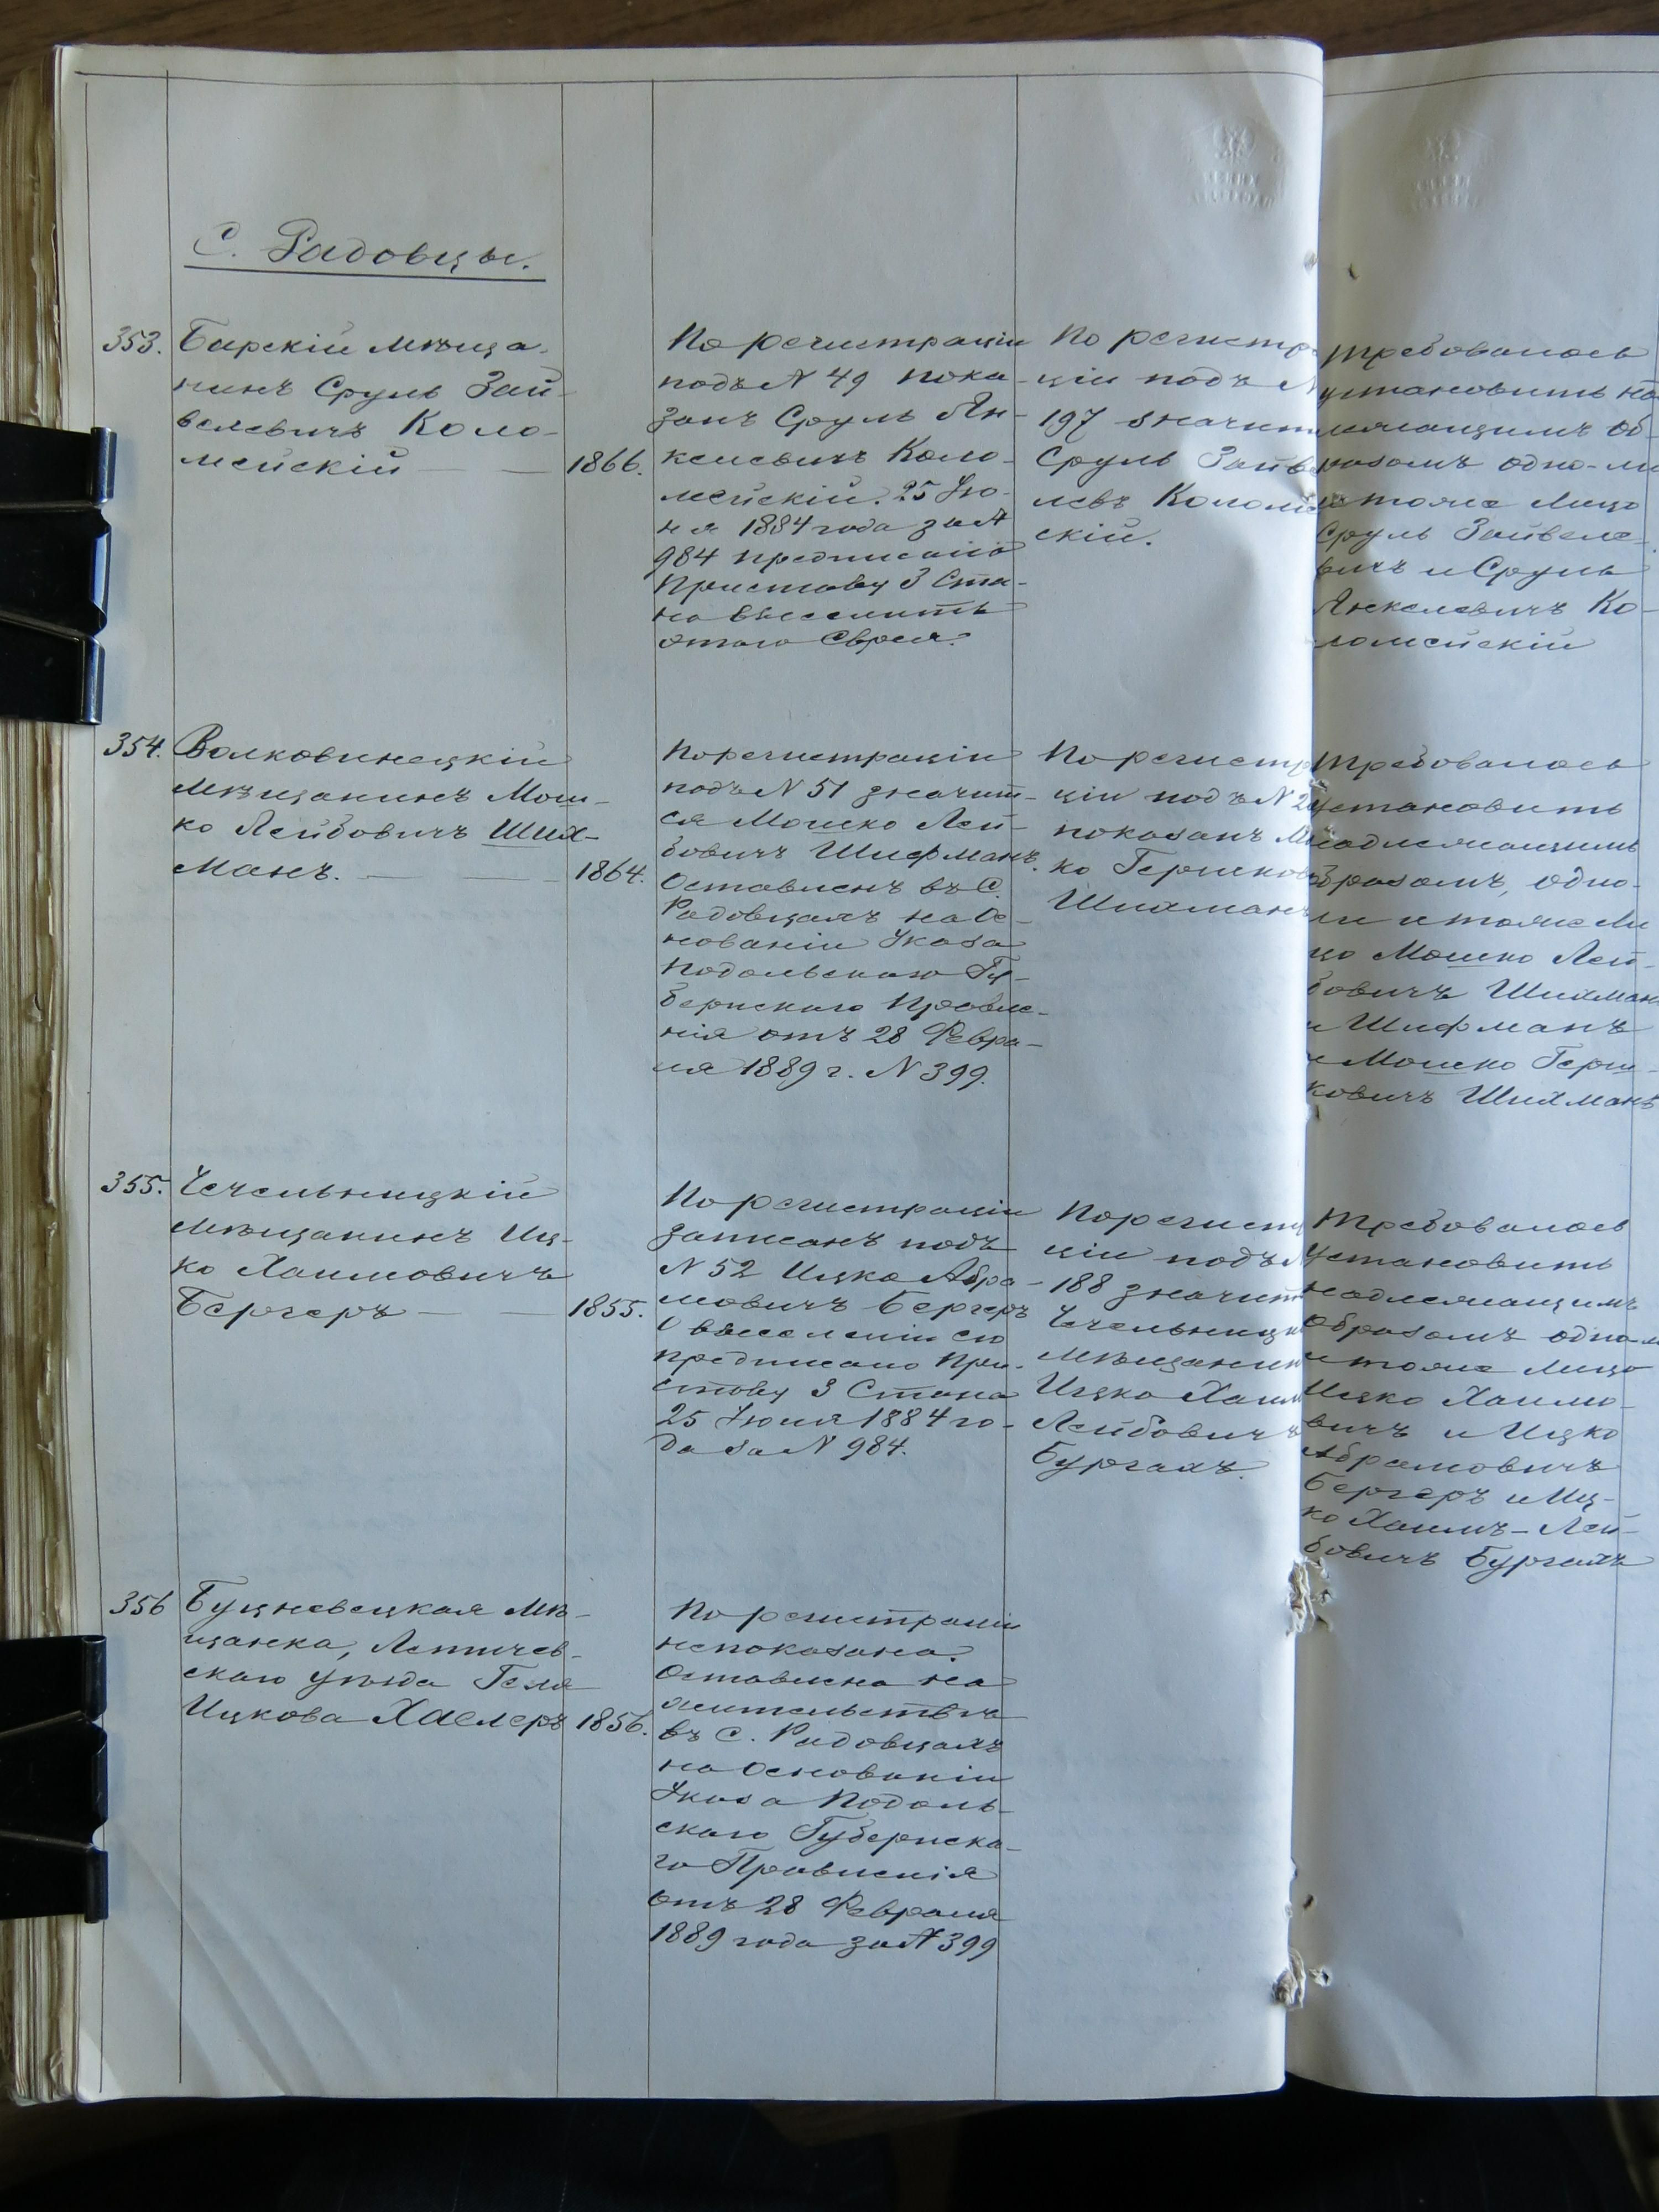 С. Радовцы.
353. Барскій мѣща-
нинъ Сруль Зай-
велевичъ Коло-
мейскій — — 1866.
По регистраціи
подъ N 49 пока-
занъ Сруль Ян-
келевичъ Коло-
мейскій. 25 Ію-
ня 1884 года за N
984 предписано
Приставу 3 Ста-
на выселить
этого Еврея.
По регистр
ціи подъ N
197 значит
Сруль Зайве
левъ Коломе
скій.
Требовалось
установить на
лежащимъ об-
разомъ одно-ли
и тоже лицо
Сруль Зайвеле-
вичъ и Сруль
Янкелевичъ Ко-
ломейскій
354. Волковинецкій
мѣщанинъ Мош-
ко Лейбовичъ Ших-
манъ. — — 1864.
По регистраціи
подъ N 51 значит-
ся Мошко Лей-
бовичъ Шифманъ.
Оставленъ въ С.
Радовцахъ на Ос-
нованіи Указа
Подольскаго Гу-
бернскаго Правле-
нія отъ 28 Февра-
ля 1889 г. N 399.
По регистр
ціи подъ N 2
показанъ Мо
ко Гершков
Шихманъ
Требовалось
установить
надлежащимъ
образомъ, одно-
ли и тоже ли
цо Мошко Лей-
бовичъ Шихман
и Шифманъ
и Мошко Герш-
ковичъ Шихманъ
355. Чечельницкій
мѣщанинъ Иц-
ко Хаимовичъ
Бергеръ — — 1855.
По регистраціи
записанъ подъ
N 52 Ицко Абра-
мовичъ Бергеръ
О выселеніи его
предписано При-
ставу 3 Стана
25 Іюня 1884 го-
да за N 984.
По регист
ціи подъ N
188 значит
Чечельницк
мѣщанин
Ицко Хаим
Лейбовичъ
Бургахъ.
Требовалось
Установить
надлежащимъ
образомъ одно ли
и тоже лицо
Ицко Хаимо-
вичъ и Ицко
Абрамовичъ
Бергеръ и Иц-
ко Хаимъ-Лей-
бовичъ Бургахъ
356 Буцневецкая мѣ-
щанка, Летичев-
скаго уѣзда Геля
Ицкова Хаслеръ 1856.
По регистраціи
не показана.
Оставлена на
жительствѣ
въ С. Радовцахъ
на Основаніи
Указа Подоль-
скаго Губернска-
го Правленія
отъ 28 Февраля
1889 года за N 399